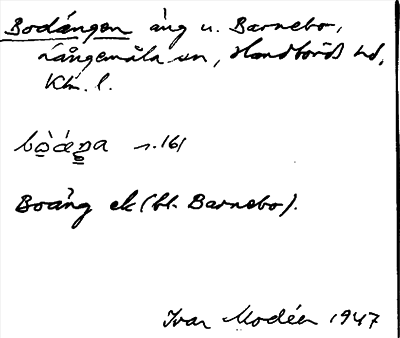 Bodängen äng u. Barnebo,
Långemåla sn, Handbörds hd,
Klm. l.
bò̲áŋa s. 161
Boäng ek (bl. Barnebo).
Ivar Modéer 1947